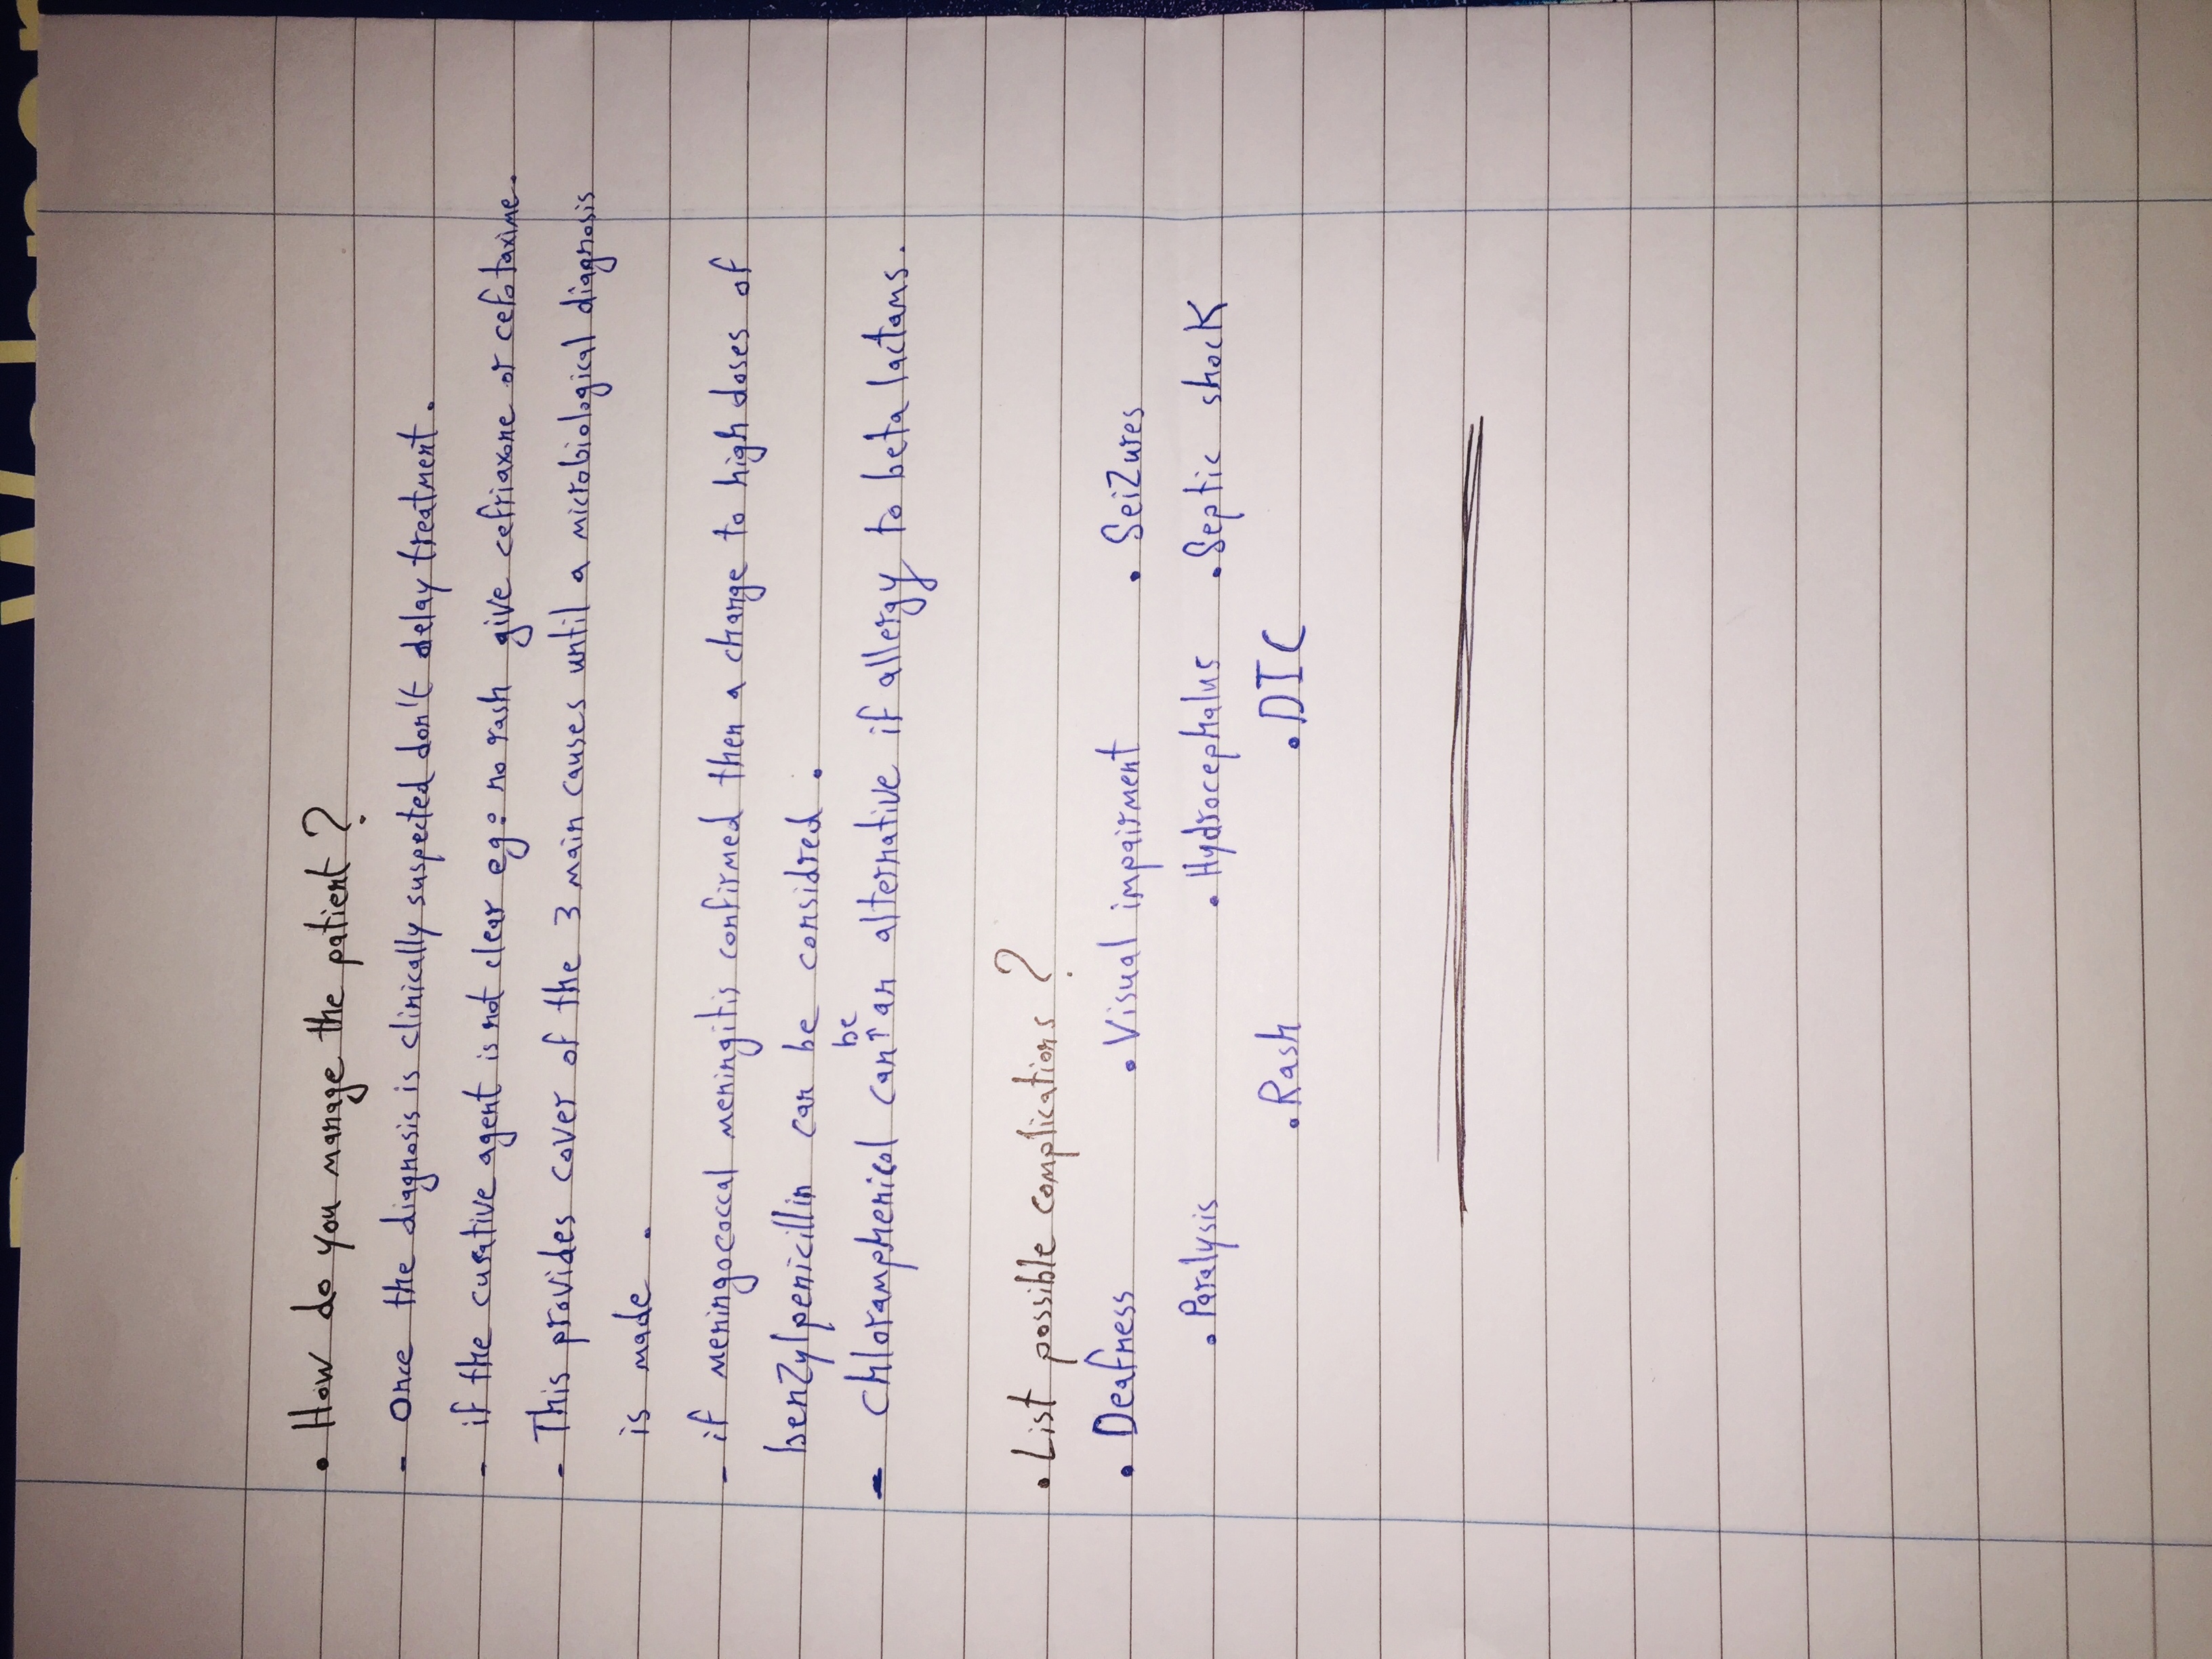 • How do you manage the patient?
- Once the diagnosis is clinically suspected don't delay treatment.
- if the cusative agent is not clear eg: no rash give cefriaxone or cefotaxime.
- This provides cover of the 3 main causes until a microbiological diagnosis
is made.
- if meningococcal meningitis confirmed then a change to high doses of
benzylpenicillin can be considred.
- chloramphenicol can be an alternative if allergy to beta lactams.
• List possible complications?
• Deafness • Visual impairment • Seizures
• Paralysis • Hydrocephalus • Septic shock
• Rash • DIC